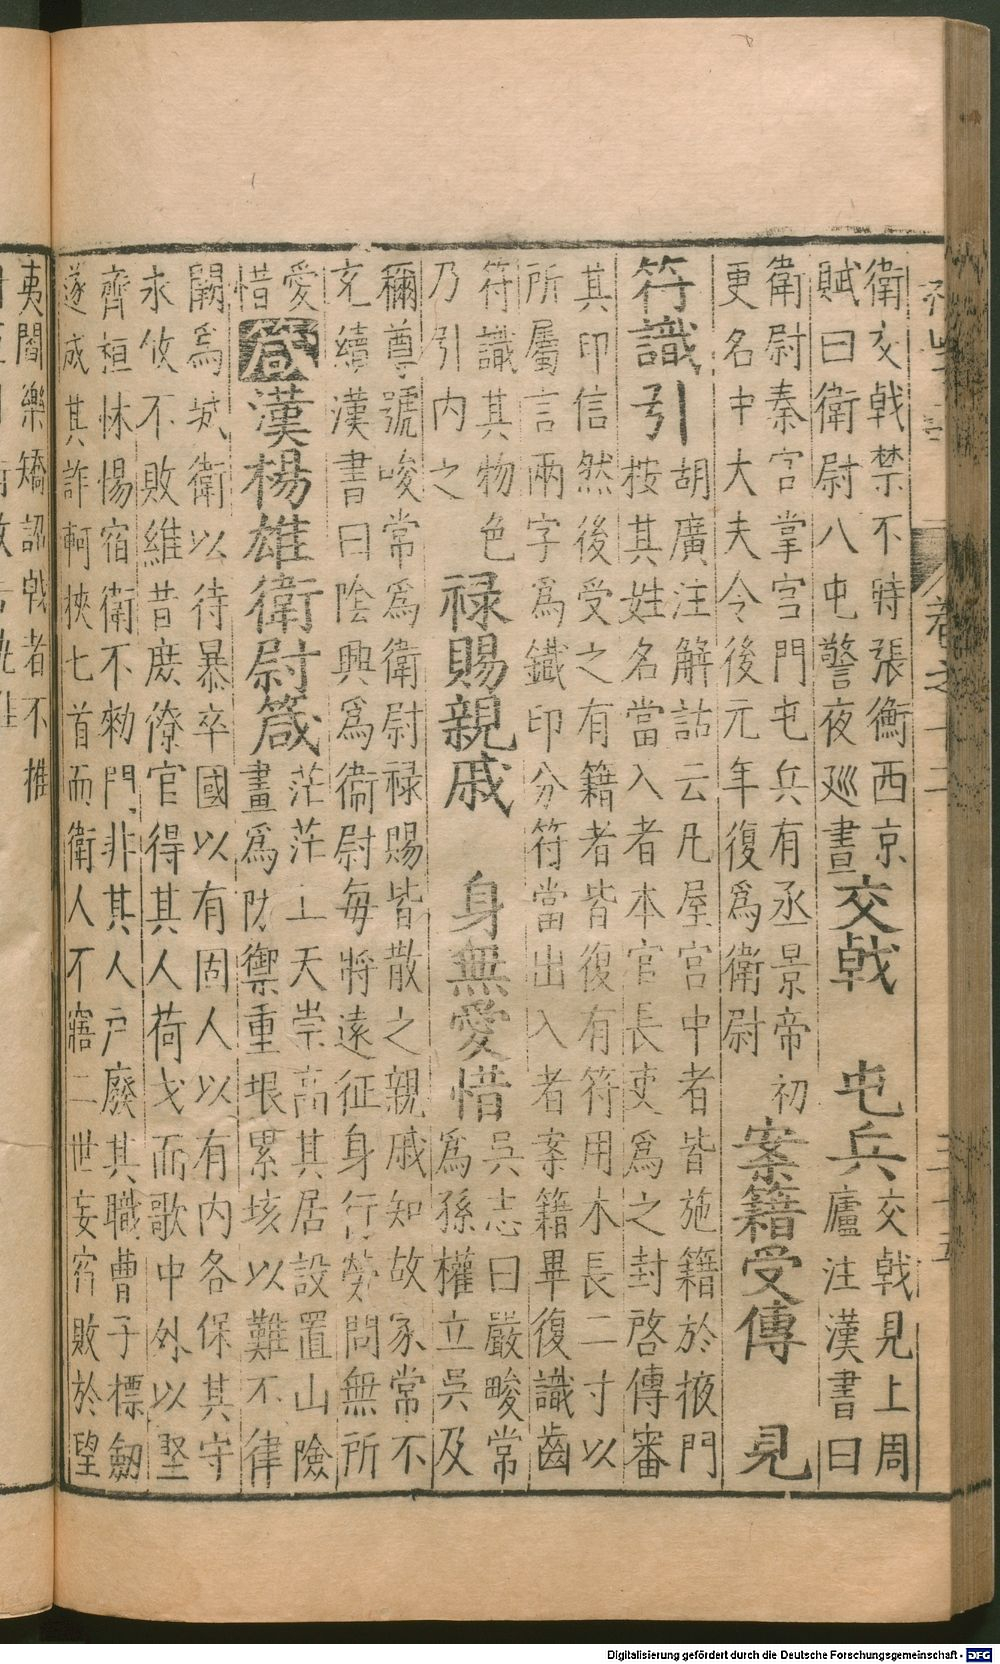 衛交戟禁不時張衡西京
賦曰衛尉八屯警夜廵晝
交戟
屯兵
交戟見上周
廬注漢書曰
衛尉秦宮掌宮門屯兵有丞景帝初
更名中大夫令後元年復爲衛尉
案籍受傳
見
符識引
胡廣注解詁云凡屋宮中者皆施籍於掖門
按其姓名當入者本官長吏爲之封啓傳審
其印信然後受之有籍者皆復有符用木長二寸以
所屬言兩字爲鐵印分符當出入者案籍畢復識齒
符識其物色
乃引内之
禄賜親戚
身無愛惜
吳志曰嚴畯常
爲孫權立吳及
稱尊號畯常爲衛尉禄賜皆散之親戚知故家常不
充續漢書曰陰興爲衛尉每將遠征身行勞問無所
愛
惜
箴
漢楊雄衛尉箴
茫茫上天崇高其居設置山險
畫爲防禦重垠累垓以難不律
闕爲城衛以待暴卒國以有固人以有内各保其守
永攸不敗維昔庶僚官得其人荷戈而歌中外以堅
齊桓怵惕宿衛不勑門非其人戸廢其職曹子摽劒
遂成其詐軻挾匕首而衛人不寤二世妄宿敗於望
夷閻樂矯詔戟者不推
卷之十二
三十五
Digitalisierung gefördert durch die Deutsche Forschungsgemeinschaft - DFG